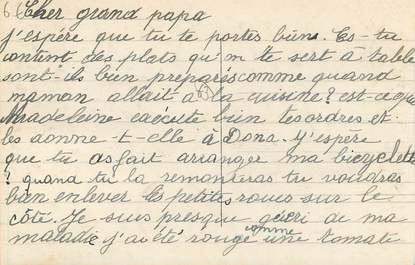 6 Cher grand papa
j'espère que tu te portes bien. Es-tu
content des plats qu'on te sert à table
sont-ils bien préparés comme quand
maman allait à la cuisine? est-ce que
Madeleine exécute bien tes ordres et
les donne-t-elle à Dona. J'espère
que tu as fait arranger ma bicyclette
? quand tu la remonteras tu voudras
bien enlever les petites roues sur le
côté. Je suis presque guéri de ma
maladie j'ai été rouge comme une tomate